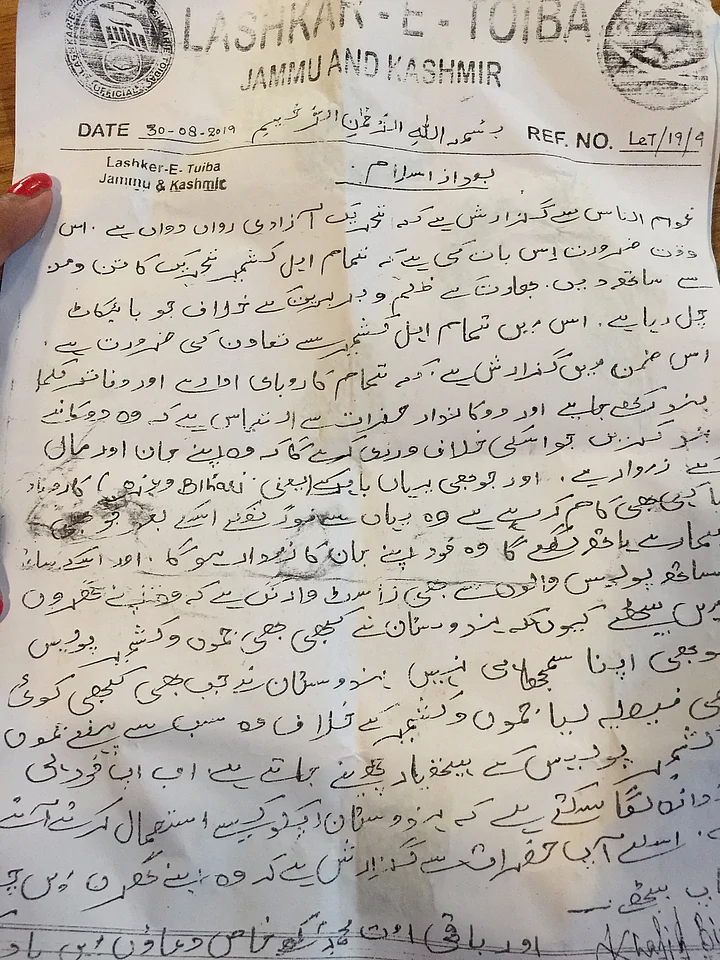 LASHKAR - E - TOIBA
JAMMU AND KASHMIR
OFFICIAL
DATE 30-08-2019 بسمہ اللہ الرّحمٰن الرّحیم REF. NO. LeT/19/9
Lashker-E- Tuiba
Jammu & Kashmir
بعد از اسلام
عوام الناس سے گزارش ہے کہ تحریک آزادی رواں دواں ہے۔ اس
وقت ضرورت اِس بات کی ہے کہ تمام اہل کشمیر تحریک کا تن و
سے ساتھ دیں۔ بھارت کے ظلم و بربریت کے خلاف جو بائیکاٹ
چل رہا ہے۔ اس میں تمام اہل کشمیر سے تعاون کی ضرورت ہے۔
اس ضمن میں گزارش ہے کہ تمام کاروباری ادارے اور دفاتر
بند رکھے جائے اور دوکاندار حضرات سے التماس ہے کہ وہ دوکانے
بند کریں جو اسکی خلاف ورزی کرے گا کہ وہ اپنے جان اور مال
کے ذموار ہے۔ اور جو بھی یہاں باہر کے (یعنی Bihari وغیرہ) کاروبار
یا کوئی بھی کام کر رہے ہے وہ یہاں سے اسکے بعد جو بھی
ہمارے ہاتھ لگے گا وہ خود اپنے جان کا ذموار ہو گا۔ اور اسکے
ساتھ پولیس والوں سے بھی گزارش ہے کہ وہ اپنے گھروں
میں بیٹھے کیوںکہ ہندوستان نے کبھی بھی جموں و کشمیر پولیس
کو بھی اپنا سمجھا ہی نہیں ہندوستان نے جب بھی کبھی کوئی
بھی فیصلہ لیا جموں و کشمیر کے خلاف وہ سب سے پہلے جموں
کشمیر پولیس سے ہتھیار چھینے جاتے ہے اب اب خود ہی
اندازہ لگا سکتے ہے کہ ہندوستان اپکو کیسے استعمال کرتے آئے
ہے۔ اسلئے آپ حضرات سے گزارش ہے کہ وہ اپنے گھروں میں
بیٹھے۔
اور باقی امت محمدیہ کو خاص دعاؤں میں یاد